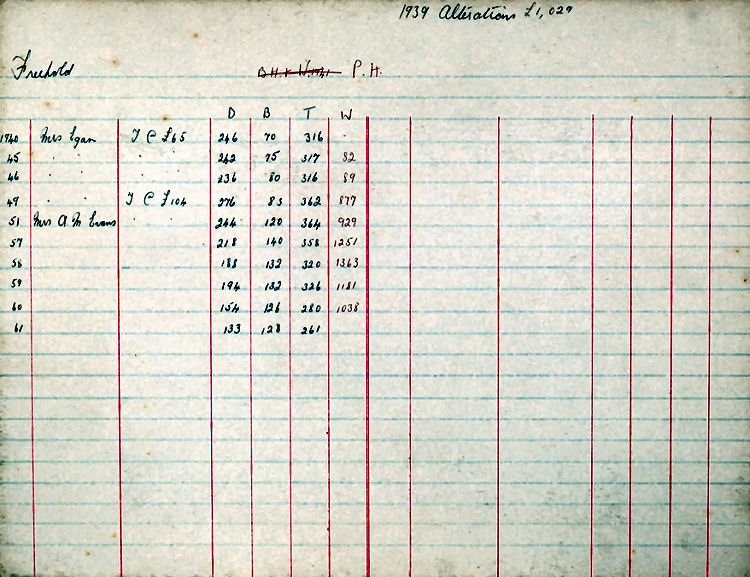 1939 Alterations £1,029
Freehold P.H.
D B T W
1940 Mrs Egan T @ £65 246 70 316 -
45 " " " " 242 75 317 82
46 " " 236 80 316 89
49 " " T @ £104 276 85 362 877
51 Mrs A. M Evans " " 244 120 364 929
57 218 140 358 1251
58 188 132 320 1363
59 194 132 326 1181
60 154 126 280 1038
61 133 128 261